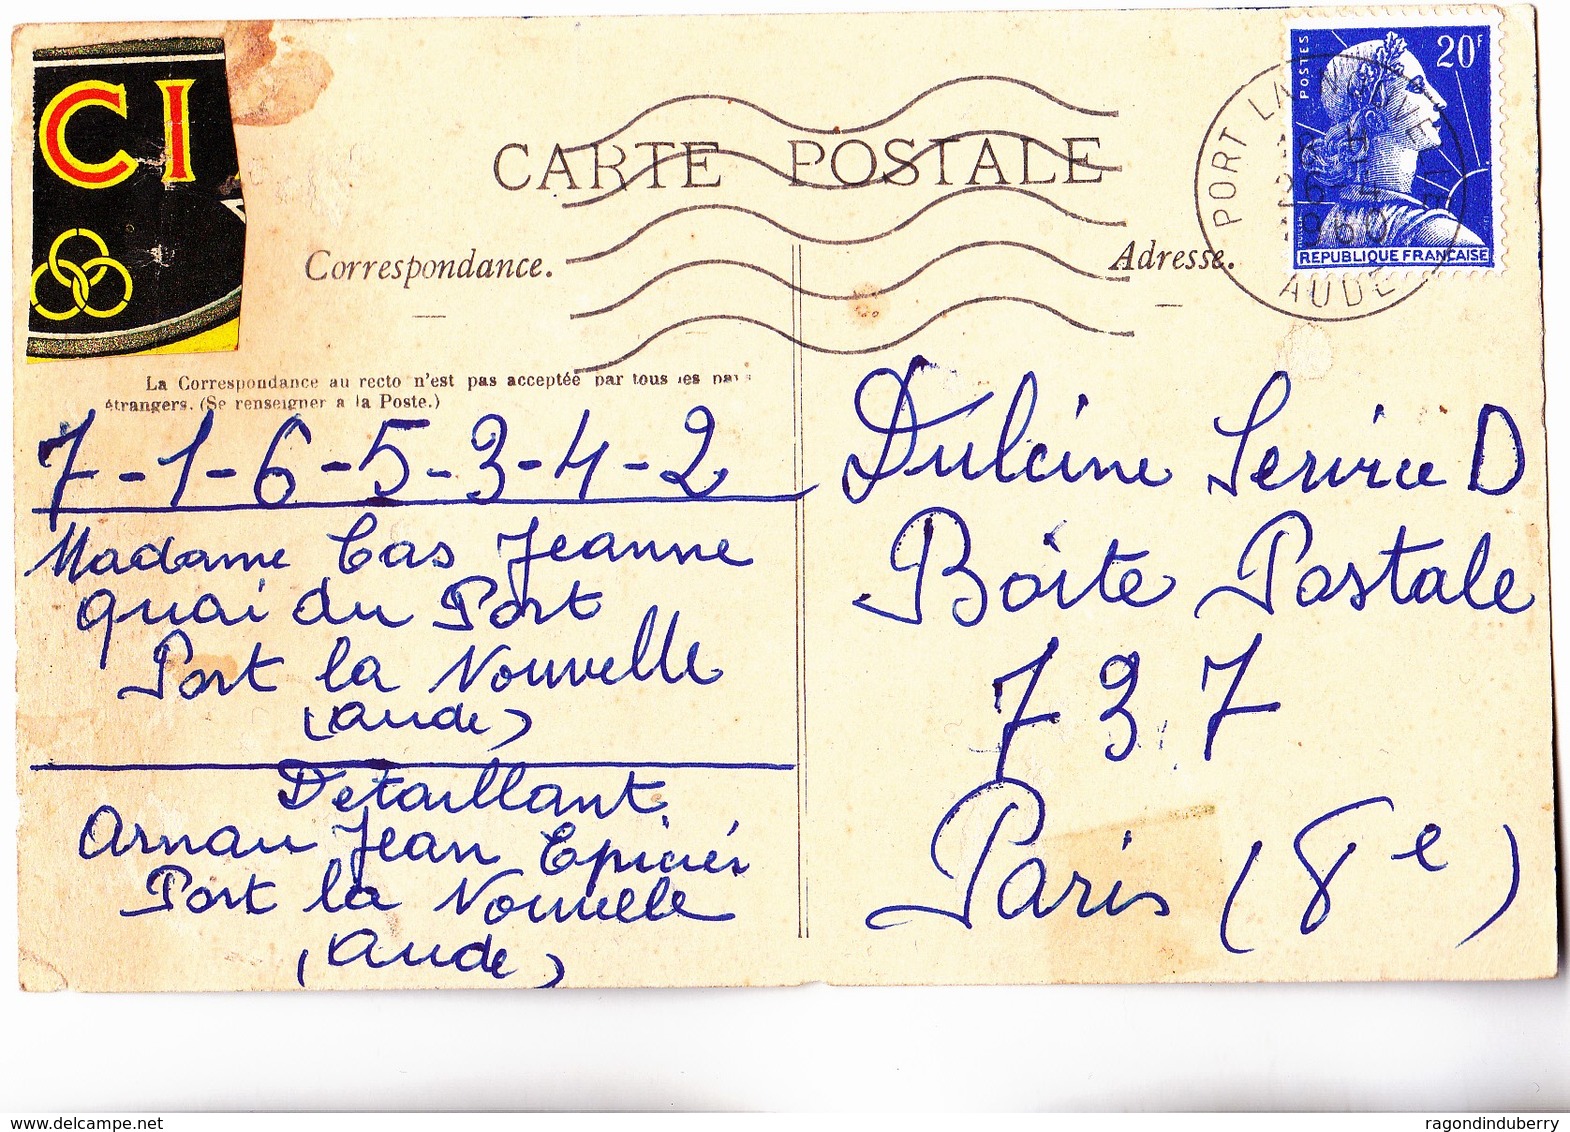 CI
CARTE POSTALE
POSTES
20F
REPUBLIQUE FRANÇAISE
PORT LA NOUVELLE
1960
AUDE
Correspondance.
Adresse.
La Correspondance au recto n'est pas acceptée par tous les pays
étrangers. (Se renseigner a la Poste.)
7-1-6-5-3-4-2
Madame Cas Jeanne
quai du Port
Port la Nouvelle
(Aude)
Detaillant
Arnau Jean Epicier
Port la Nouvelle
(Aude)
Dulcine Service D
Boîte Postale
737
Paris (8e)
delcampe.net
ragondinduberry